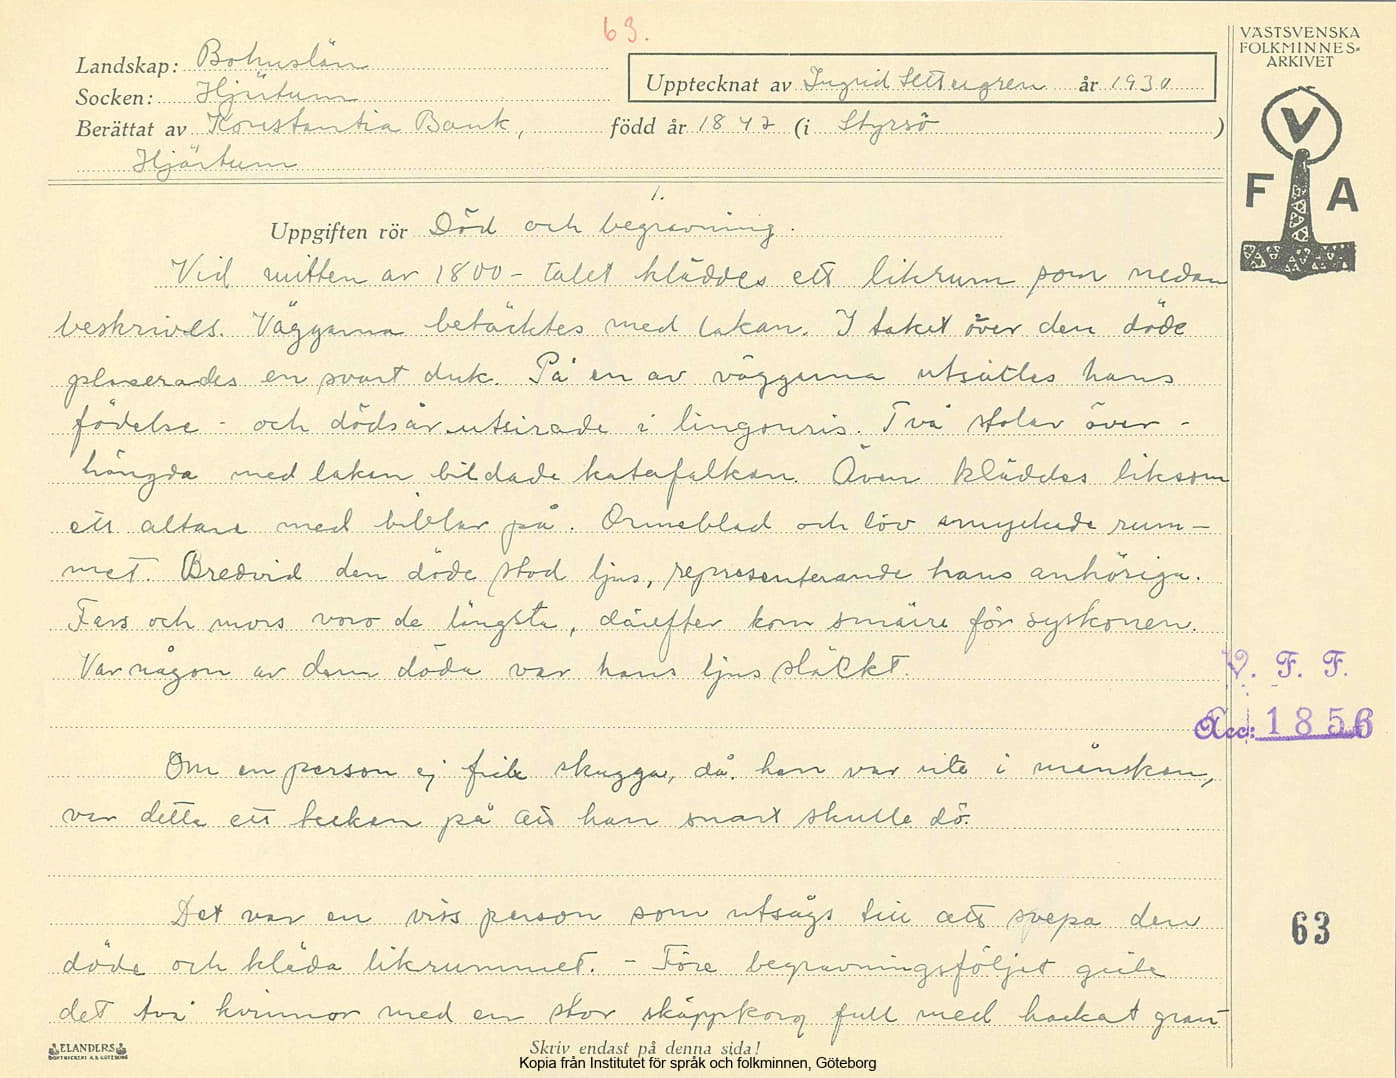 63.
VÄSTSVENSKA
FOLKMINNES-
ARKIVET
Landskap: Bohuslän
Upptecknat av Ingrid Settergren år 1930
Socken: Hjärtum
Berättat av Konstantia Bank, född år 1847 (i Styrsö )
Hjärtum
V
F A
1.
Uppgiften rör Död och begravning.
Vid mitten av 1800-talet kläddes ett likrum som nedan
beskrives. Väggarna betäcktes med lakan. I taket över den döde
placerades en svart duk. På en av väggarna utsattes hans
födelse- och dödsår utsirade i lingonris. Två stolar över-
hängda med lakan bildade katafalken. Även kläddes liksom
ett altare med biblar på. Ormeblad och löv smyckade rum-
met. Bredvid den döde stod ljus, representerande hans anhöriga.
Fars och mors voro de längsta, därefter kom smärre för syskonen.
Var någon av dem döda var hans ljus släckt.
V. F. F.
Acc: 1856
Om en person ej fick skugga, då han var ute i månsken,
var detta ett tecken på att han snart skulle dö.
Det var en viss person som utsågs till att svepa den
63
döde och kläda likrummet. - Före begravningsföljet gick
det två kvinnor med en stor skäppkorg full med hackat gran-
ELANDERS
BOKTRYCKERI A.B. GÖTEBORG
Skriv endast på denna sida!
Kopia från Institutet för språk och folkminnen, Göteborg